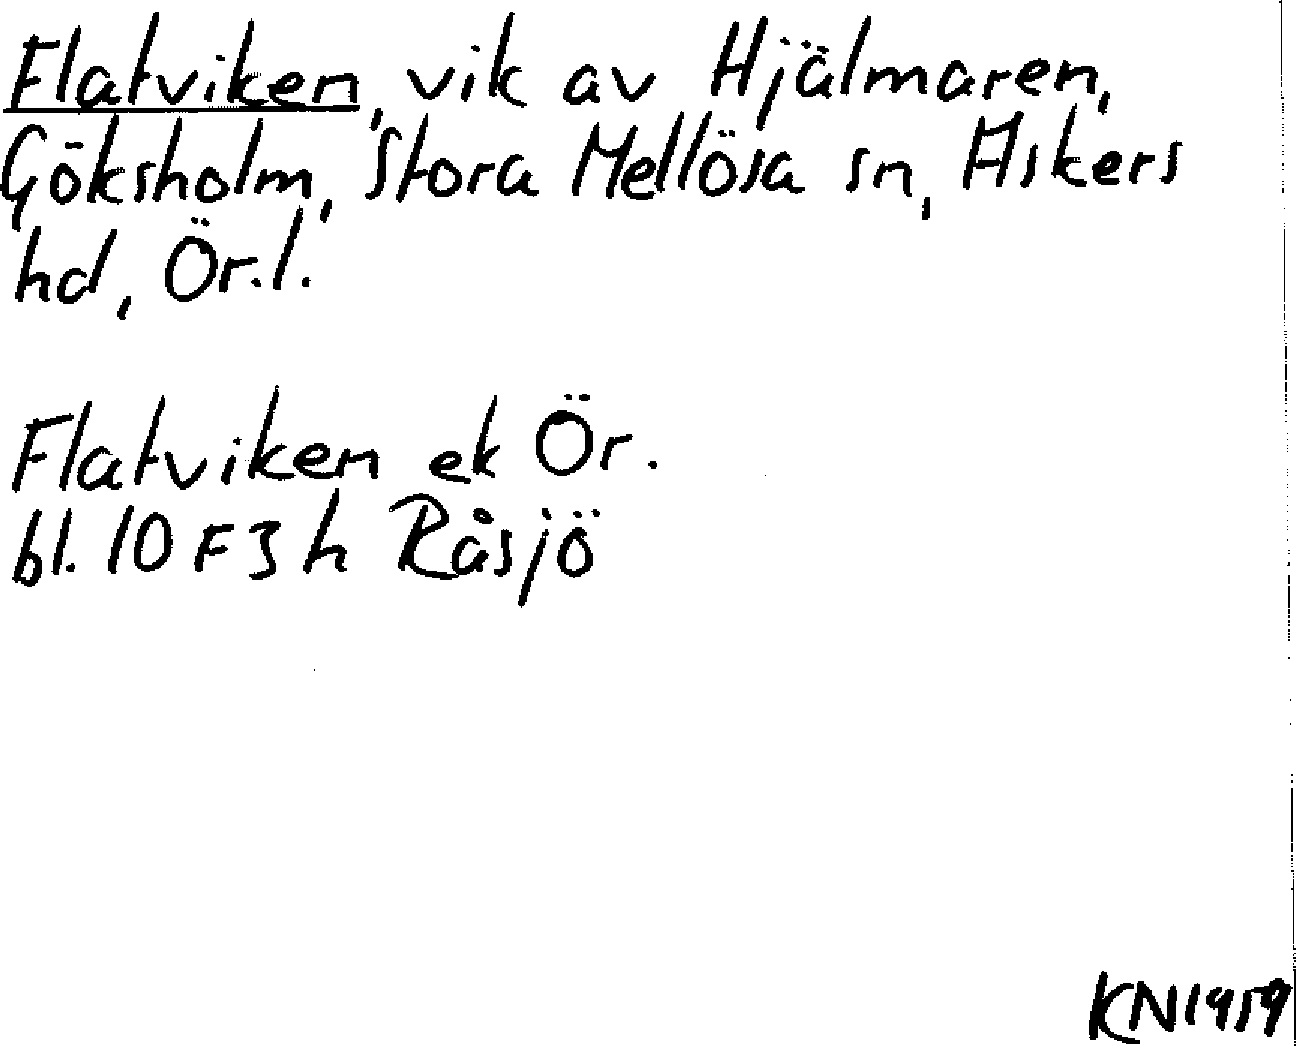 Flatviken, vik av Hjälmaren,
Göksholm, Stora Mellösa sn, Askers
hd, Ör.l.
Flatviken ek Ör.
bl. 10 F 3 h Råsjö
KN1959